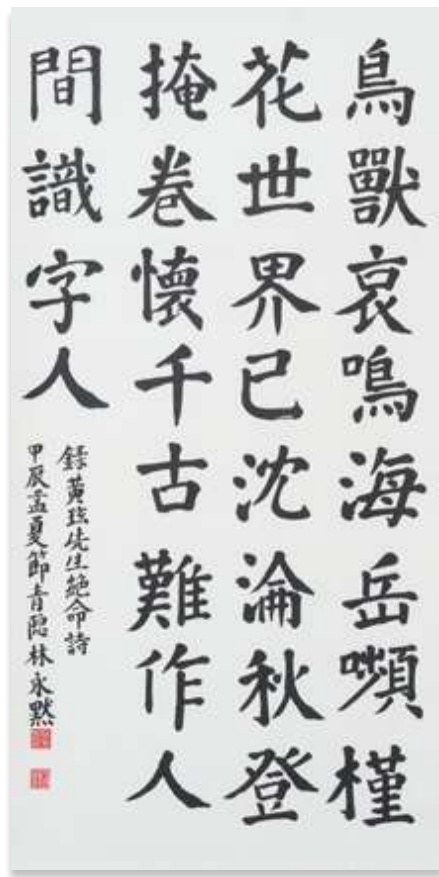 鳥獸哀鳴海岳嚬槿
花世界已沈淪秋登
掩卷懷千古難作人
間識字人
錄黃玹先生絕命詩
甲辰孟夏節青隐林永默